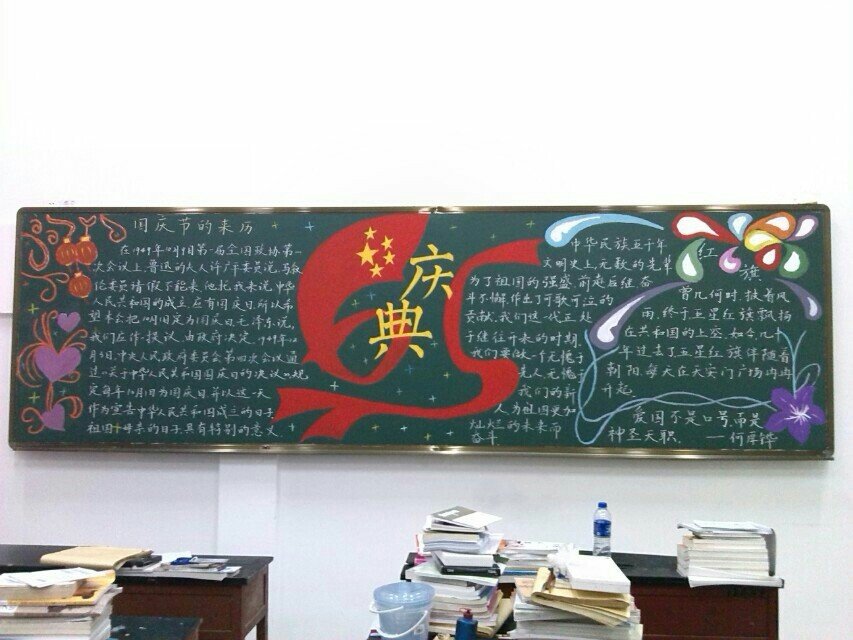 国庆节的来历
在1949年10月9日第一届全国政协第一
次会议上.鲁迅的夫人许广平委员说,马叙
伦委员请假不能来,他托我来说.中华
人民共和国的成立.应有国庆日,所以希
望本会把10月1日定为国庆日.毛泽东说,
我们应作一提议.由政府决定.1949年12
月3日,中央人民政府委员会第四次会议通
过《关于中华人民共和国国庆日的决议》规
定每年10月1日为国庆日.并以这一天
作为宣告中华人民共和国成立的日子
祖国母亲的日子.具有特别的意义
庆
典
中华民族五千年
文明史上,无数的先辈
为了祖国的强盛.前赴后继奋
斗不懈.作出了可歌可泣的
贡献.我们这一代正处
于继往开来的时期.
我们要做一个无愧于
先人无愧于
我们的新
人为祖国更加
灿烂的未来而
奋斗
红
旗
曾几何时,披着风
雨,终于五星红旗飘扬
在共和国的上空.如今几十
年过去了五星红旗伴随着
朝阳,每天在天安门广场冉冉
升起.
爱国不是口号,而是
神圣天职. ——何厚铧